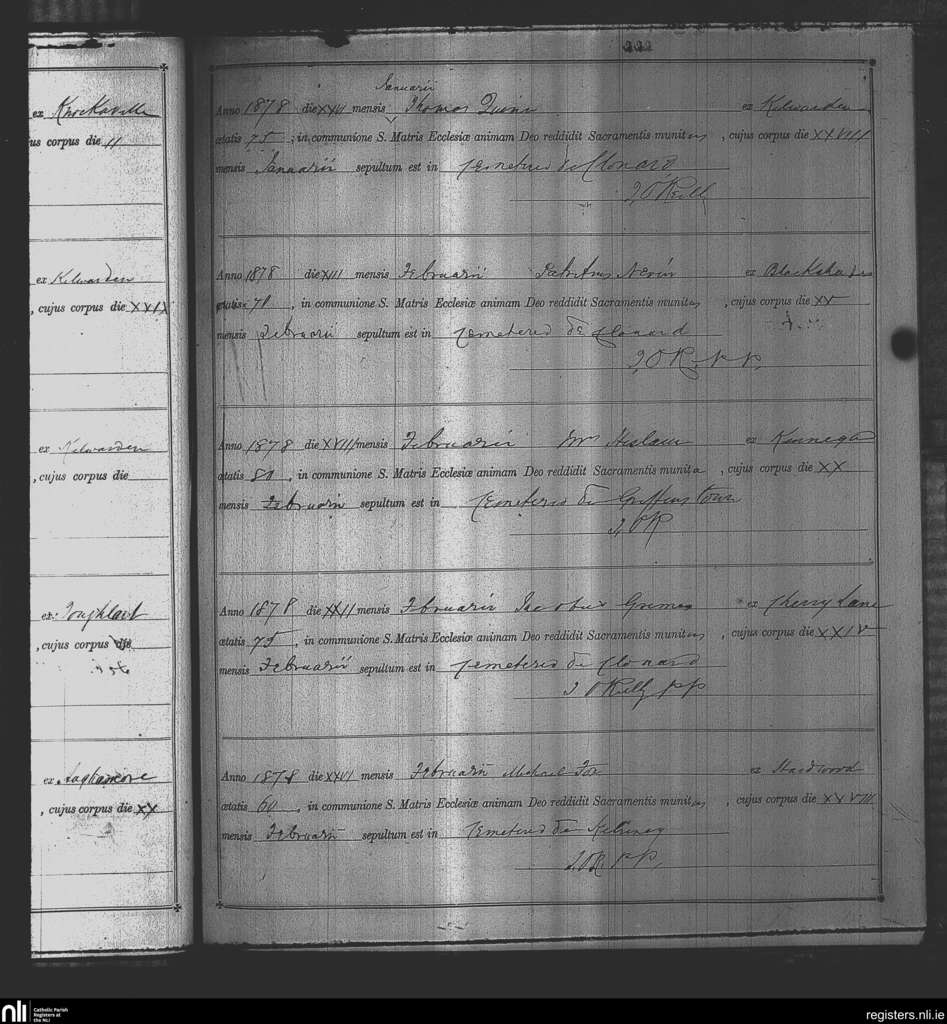 ex Knockaville
us corpus die 11
ex Kilwarden
, cujus corpus die XXIX
ex Kilwarden
, cujus corpus die
ex
, cujus corpus die
ex
, cujus corpus die XX
222
Januarii
Anno 1878 die XXVI mensis Thomas Quinn ex Kilwarden
ætatis 75, in communione S. Matris Ecclesiæ animam Deo reddidit Sacramentis munitus, cujus corpus die XXVIII
mensis Januarii sepultum est in Cemeterio de Clonard
J, O'Reilly
Anno 1878 die XIII mensis Februarii Patritius Nevin ex
ætatis 70, in communione S. Matris Ecclesiæ animam Deo reddidit Sacramentis munitus, cujus corpus die XX
mensis Februarii sepultum est in Cemeterio de Clonard
J, O R, p p,
Anno 1878 die XVIII mensis Februarii Mrs ex Kinnegad
ætatis 80, in communione S. Matris Ecclesiæ animam Deo reddidit Sacramentis munita, cujus corpus die XX
mensis Februarii sepultum est in Cemeterio de Griffinstown
J, OR
Anno 1878 die XXII mensis Februarii Jacobus Grimes ex Cherry Lane
ætatis 75, in communione S. Matris Ecclesiæ animam Deo reddidit Sacramentis munitus, cujus corpus die XXIV
mensis Februarii sepultum est in Cemeterio de Clonard
J O'Reilly p p
Anno 1878 die XXVI mensis Februarii Michael Fox ex Hardwood
ætatis 60, in communione S. Matris Ecclesiæ animam Deo reddidit Sacramentis munitus, cujus corpus die XXVIII
mensis Februarii sepultum est in Cemeterio de
J, OR p p,
nli
Catholic Parish
Registers at
the NLI
registers.nli.ie